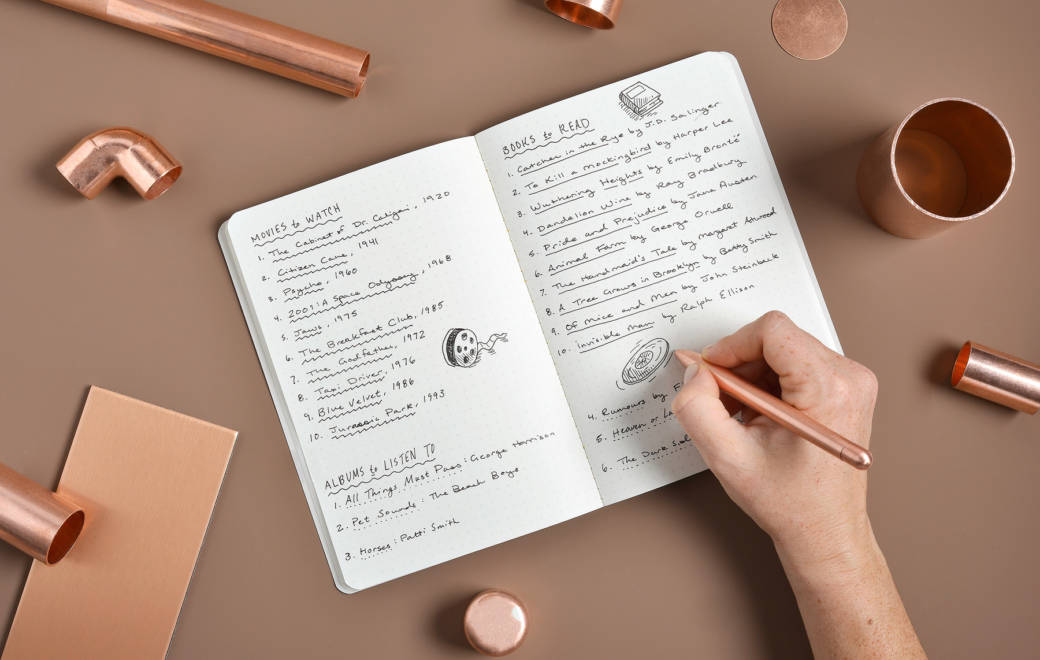 MOVIES to WATCH
1. The Cabinet of Dr. Caligari, 1920
2. Citizen Cane, 1941
3. Psycho, 1960
4. 2001: A Space Odyssey, 1968
5. Jaws, 1975
6. The Breakfast Club, 1985
7. The Godfather, 1972
8. Taxi Driver, 1976
9. Blue Velvet, 1986
10. Jurassic Park, 1993
ALBUMS to LISTEN TO
1. All Things Must Pass: George Harrison
2. Pet Sounds: The Beach Boys
3. Horses: Patti Smith
BOOKS to READ
1. Catcher in the Rye by J.D. Salinger
2. To Kill a Mockingbird by Harper Lee
3. Wuthering Heights by Emily Brontë
4. Dandelion Wine by Ray Bradbury
5. Pride and Prejudice by Jane Austen
6. Animal Farm by George Orwell
7. The Handmaid's Tale by Margaret Atwood
8. A Tree Grows in Brooklyn by Betty Smith
9. Of Mice and Men by John Steinbeck
10. Invisible Man by Ralph Ellison
4. Rumours by F
5. Heaven or La
6. The Dark